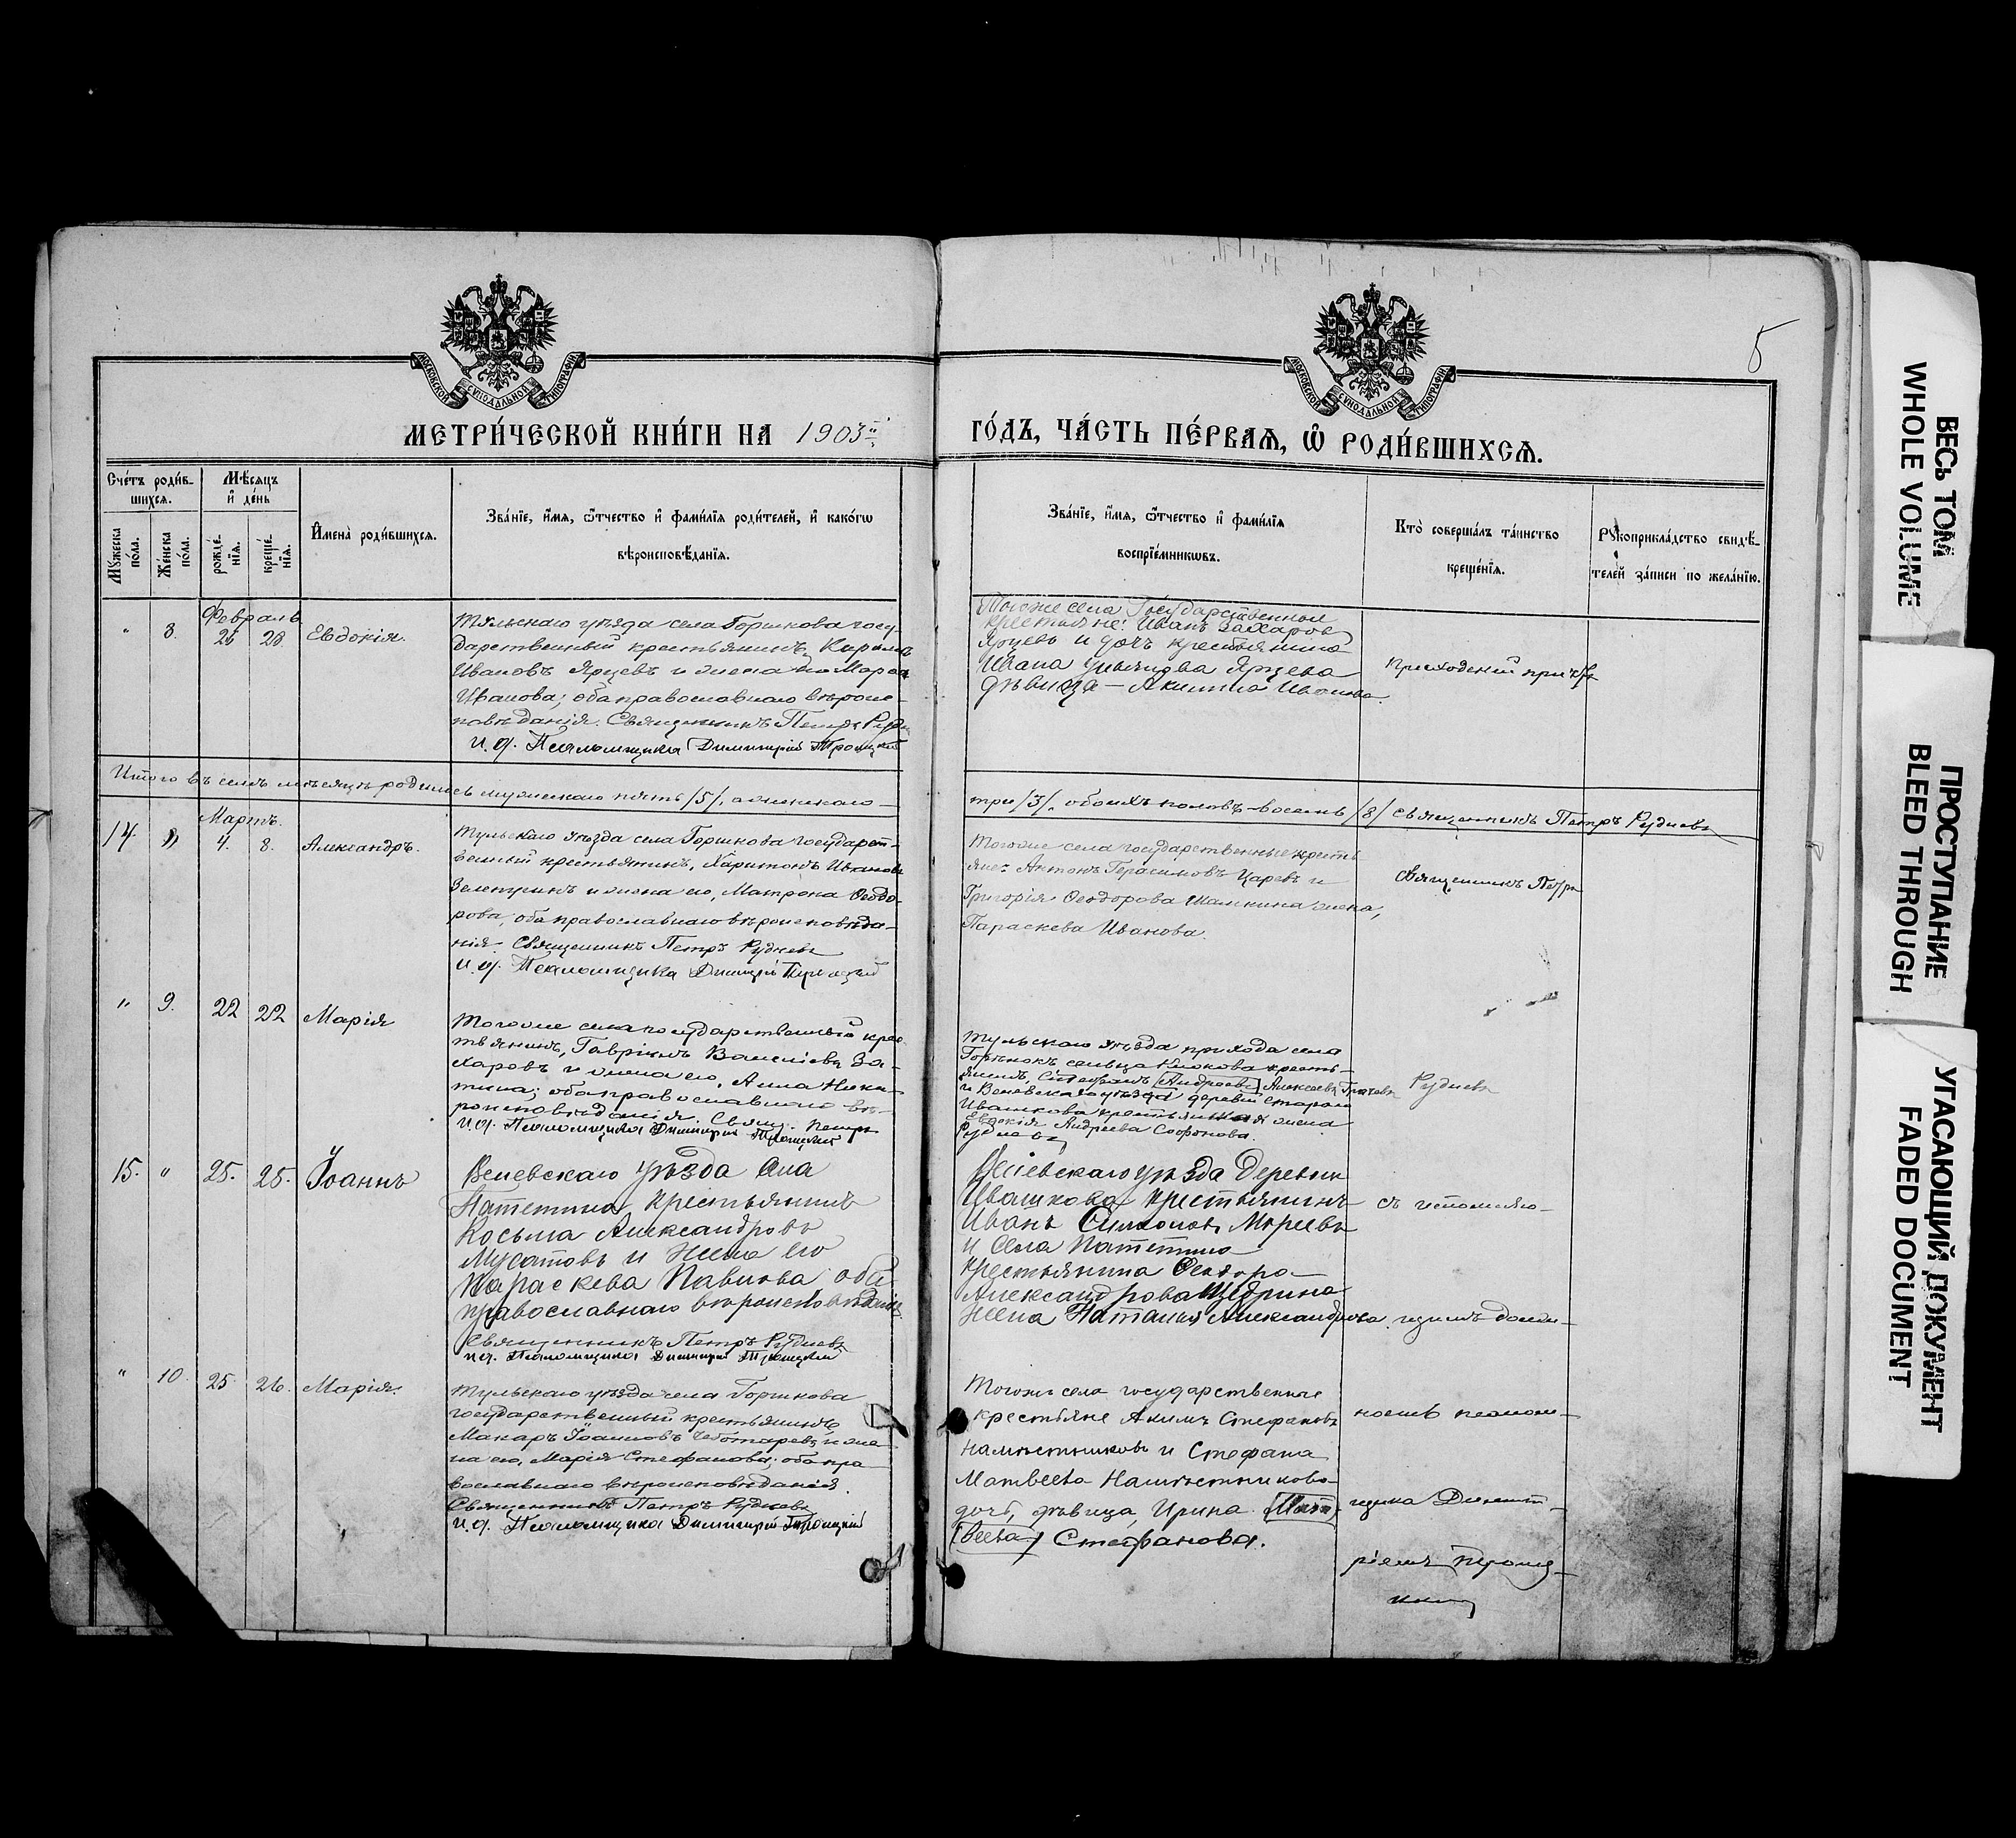 МОСКОВСКОЙ СѴНОДАЛЬНОЙ ТИПОГРАФІИ
МОСКОВСКОЙ СѴНОДАЛЬНОЙ ТИПОГРАФІИ
5
МЕТРИ́ЧЕСКОЙ КНИ́ГИ НА 1903й
ГО́ДЪ, ЧА́СТЬ ПЕ́РВАѦ, Ѡ҆ РОДИ́ВШИХСѦ.
Сче́тъ роди́в-
шихсѧ.
Мꙋ́жеска
по́ла.
Же́нска
по́ла.
Мѣ́сѧцъ
и҆ де́нь
рожде́-
нїѧ.
креще́-
нїѧ.
И҆мена̀ роди́вшихсѧ.
Зва́нїе, и҆́мѧ, ѻ҆́тчество и҆ фамі́лїѧ роди́телей, и҆ како́гѡ
вѣроисповѣ́данїѧ.
Зва́нїе, и҆́мѧ, ѻ҆́тчество и҆ фамі́лїѧ
воспрїе́мникѡвъ.
Кто̀ соверша́лъ та́инство
креще́нїѧ.
Рꙋкоприкла́дство свидѣ́-
телей за́писи по жела́нїю.
Февраль
" 8. 26 28 Евдокія.
Тульскаго уѣзда села Горшкова госу-
дарственный крестьянинъ
Ивановъ Ярцевъ и жена его
Иванова; оба православнаго вѣроис-
повѣданія. Священникъ Петръ
И. д. Псаломщика Димитрій Троицкій
Тогоже села Государственные
крестьяне: Иванъ Захаровъ
Ярцевъ и дочь крестьянина
Ивана Ярцева
дѣвица — Акилина Иванова.
Приходскій причтъ
Итого въ семъ мѣсяцѣ родилось мужескаго пять /5/, а женскаго —
три /3/, обоихъ половъ — восемь /8/ Священникъ Петръ Рудневъ
Мартъ.
14. " 4. 8. Александръ.
Тульскаго уѣзда села Горшкова государст-
венный крестьянинъ, Харитонъ Ивановъ
и жена его, Матрона Ѳеодо-
рова, оба православнаго вѣроисповѣда-
нія. Священникъ Петръ Рудневъ
И. д. Псаломщика Димитрій Троицкій
Тогоже села государственные кресть-
яне: Антонъ Герасимовъ Царевъ и
Григорія Ѳеодорова жена,
Параскева Иванова.
Священникъ Петръ
" 9. 22 22 Марія
Тогоже села государственный крес-
тьянинъ, Гавріилъ Васильевъ За-
харовъ и жена его, Анна Ники-
тина; оба православнаго вѣ-
роисповѣданія. Свящ. Петръ
И. д. Псаломщика Димитрій Троицкій
Рудневъ
Тульскаго уѣзда прихода села
сельца кресть-
янинъ, Стефанъ [Андреевъ] Алексѣевъ
и Веневскаго уѣзда деревни Старого
Ивашкова крестьянина жена
Евдокія Андреева
Рудневъ
15. " 25. 25. Іоаннъ
Веневскаго уѣзда Села
крестьянинъ
Косьма Александровъ
Мусатовъ и жена его
Параскева Павлова оба
православнаго вѣроисповѣданія
Священникъ Петръ Рудневъ
И. д. Псаломщика Димитрій Троицкій
Веневскаго уѣзда Деревни
Ивашкова крестьянинъ
Иванъ
и Села
крестьянина Ѳеодора
Александрова Щедрина
жена Наталія Александрова.
съ исполняю-
щимъ долж-
" 10. 25. 26. Марія.
Тульскаго уѣзда села Горшкова
государственный крестьянинъ
Макаръ Іоанновъ Чеботаревъ и же-
на его, Марія Стефанова; оба пра-
вославнаго вѣроисповѣданія.
Священникъ Петръ Рудневъ
И. д. Псаломщика Димитрій Троицкій
Тогоже села государственные
крестьяне Акимъ Стефановъ
Намѣстниковъ и Стефана
Матвеева Намѣстникова
дочь, дѣвица, Ирина [Мат-
веева] Стефанова.
ность псалом-
щика Димит-
ріемъ Троиц-
кимъ
ВЕСЬ ТОМ
WHOLE VOLUME
ПРОСТУПАНИЕ
BLEED THROUGH
УГАСАЮЩИЙ ДОКУМЕНТ
FADED DOCUMENT